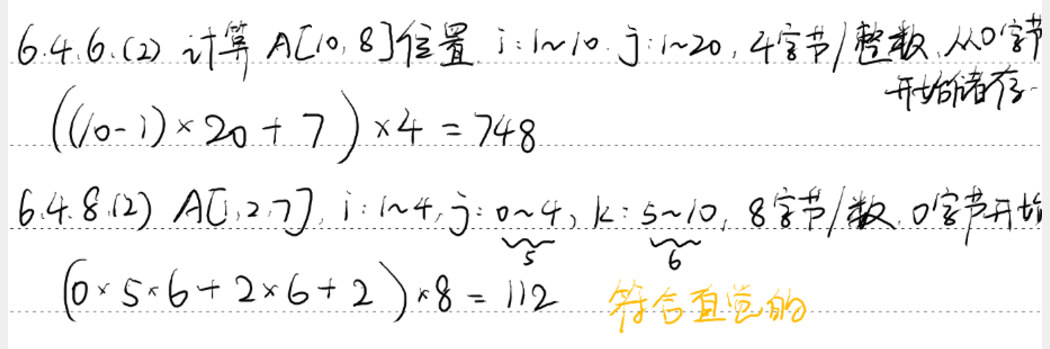 6.4.6.(2) 计算 A[10,8]位置 i:1~10. j:1~20, 4字节/整数, 从0字节
开始储存.
((10-1)×20+7)×4=748
6.4.8.(2) A[1,2,7], i:1~4, j:0~4, k:5~10, 8字节/数, 0字节开始
5 6
(0×5×6+2×6+2)×8=112 符合直觉的